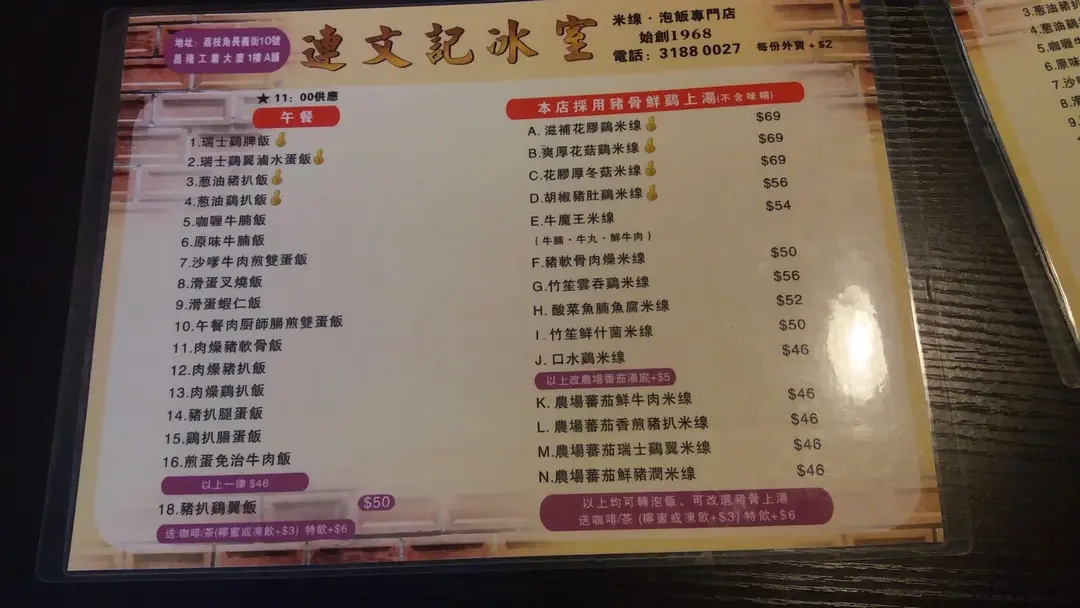 地址：荔枝角長義街10號
昌隆工業大廈1樓A舖
連文記冰室
米线·泡飯專門店
始創1968
電話：3188 0027
每份外賣+$2
★ 11：00供應
午餐
1.瑞士鷄脾飯
2.瑞士鷄翼滷水蛋飯
3.葱油豬扒飯
4.葱油鷄扒飯
5.咖喱牛腩飯
6.原味牛腩飯
7.沙嗲牛肉煎雙蛋飯
8.滑蛋叉燒飯
9.滑蛋蝦仁飯
10.午餐肉厨師腸煎雙蛋飯
11.肉燥豬軟骨飯
12.肉燥豬扒飯
13.肉燥鷄扒飯
14.豬扒腿蛋飯
15.鷄扒腸蛋飯
16.煎蛋免治牛肉飯
以上一律 $46
18.豬扒鷄翼飯 $50
送:咖啡/茶(檸蜜或凍飲+$3) 特飲+$6
本店採用豬骨鮮鷄上湯(不含味精)
A. 滋補花膠鷄米线 $69
B.爽厚花菇鷄米线 $69
C.花膠厚冬菇米线 $69
D.胡椒豬肚鷄米线 $56
E.牛魔王米线 $54
(牛腩·牛丸·鮮牛肉)
F.豬軟骨肉燥米线 $50
G.竹笙雲吞鷄米线 $56
H. 酸菜魚腩魚腐米线 $52
I. 竹笙鮮什菌米线 $50
J. 口水鷄米线 $46
以上改農場番茄湯底+$5
K. 農場蕃茄鮮牛肉米线 $46
L. 農場蕃茄香煎豬扒米线 $46
M.農場蕃茄瑞士鷄翼米线 $46
N.農場蕃茄鮮豬潤米线 $46
以上均可轉泡飯、可改選豬骨上湯
送咖啡/茶 (檸蜜或凍飲+$3) 特飲+$6
3.葱油豬扒
4.葱油鷄
5.咖喱牛
6.原味
7.沙
8.滑
9.